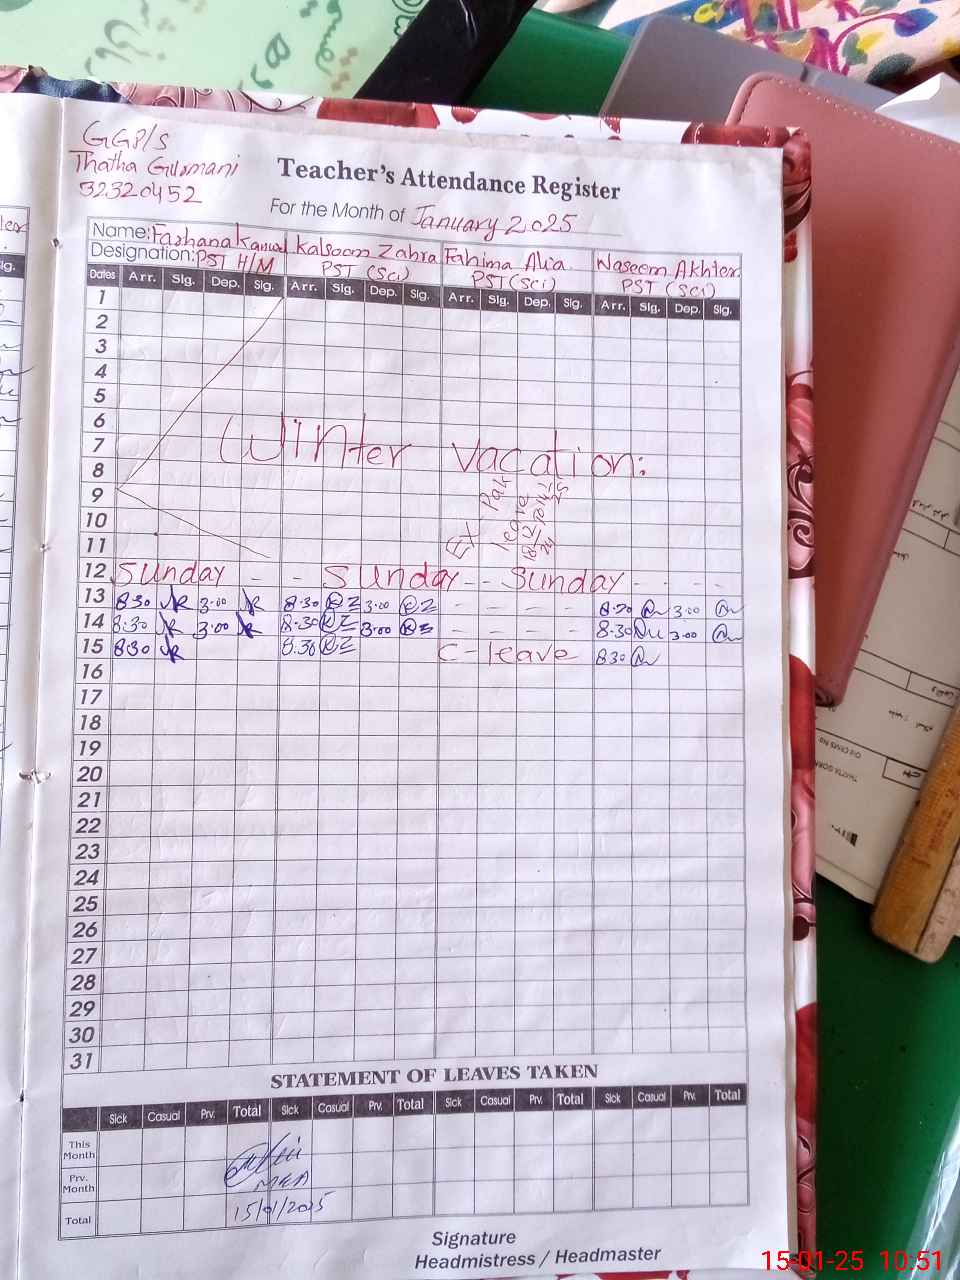 GGP/S
Thatha Gurmani
32320452
Teacher's Attendance Register
For the Month of January 2025
Name: Farhana Kanwal Kalsoom Zahra Fahima Alia Naseem Akhter
Designation: PST H/M PST (Sci) PST (Sci) PST (Sci)
Dates Arr. Sig. Dep. Sig. Arr. Sig. Dep. Sig. Arr. Sig. Dep. Sig. Arr. Sig. Dep. Sig.
1
2
3
4
5
6
7 Winter vacation:
8
9
10
11
Ex Pak
12 Sunday - - Sunday - - Sunday - - - -
13 8:30 3:00 8:30 KZ 3:00 KZ - - - - 8:30 3:00
14 8:30 3:00 8:30 KZ 3:00 KZ - - - - 8:30 3:00
15 8:30 8:30 KZ C-leave 8:30
16
17
18
19
20
21
22
23
24
25
26
27
28
29
30
31
STATEMENT OF LEAVES TAKEN
Sick Casual Prv. Total Sick Casual Prv. Total Sick Casual Prv. Total Sick Casual Prv. Total
This Month
Prv. Month
MEA
Total 15/01/2025
Signature
Headmistress / Headmaster
15-01-25 10:51